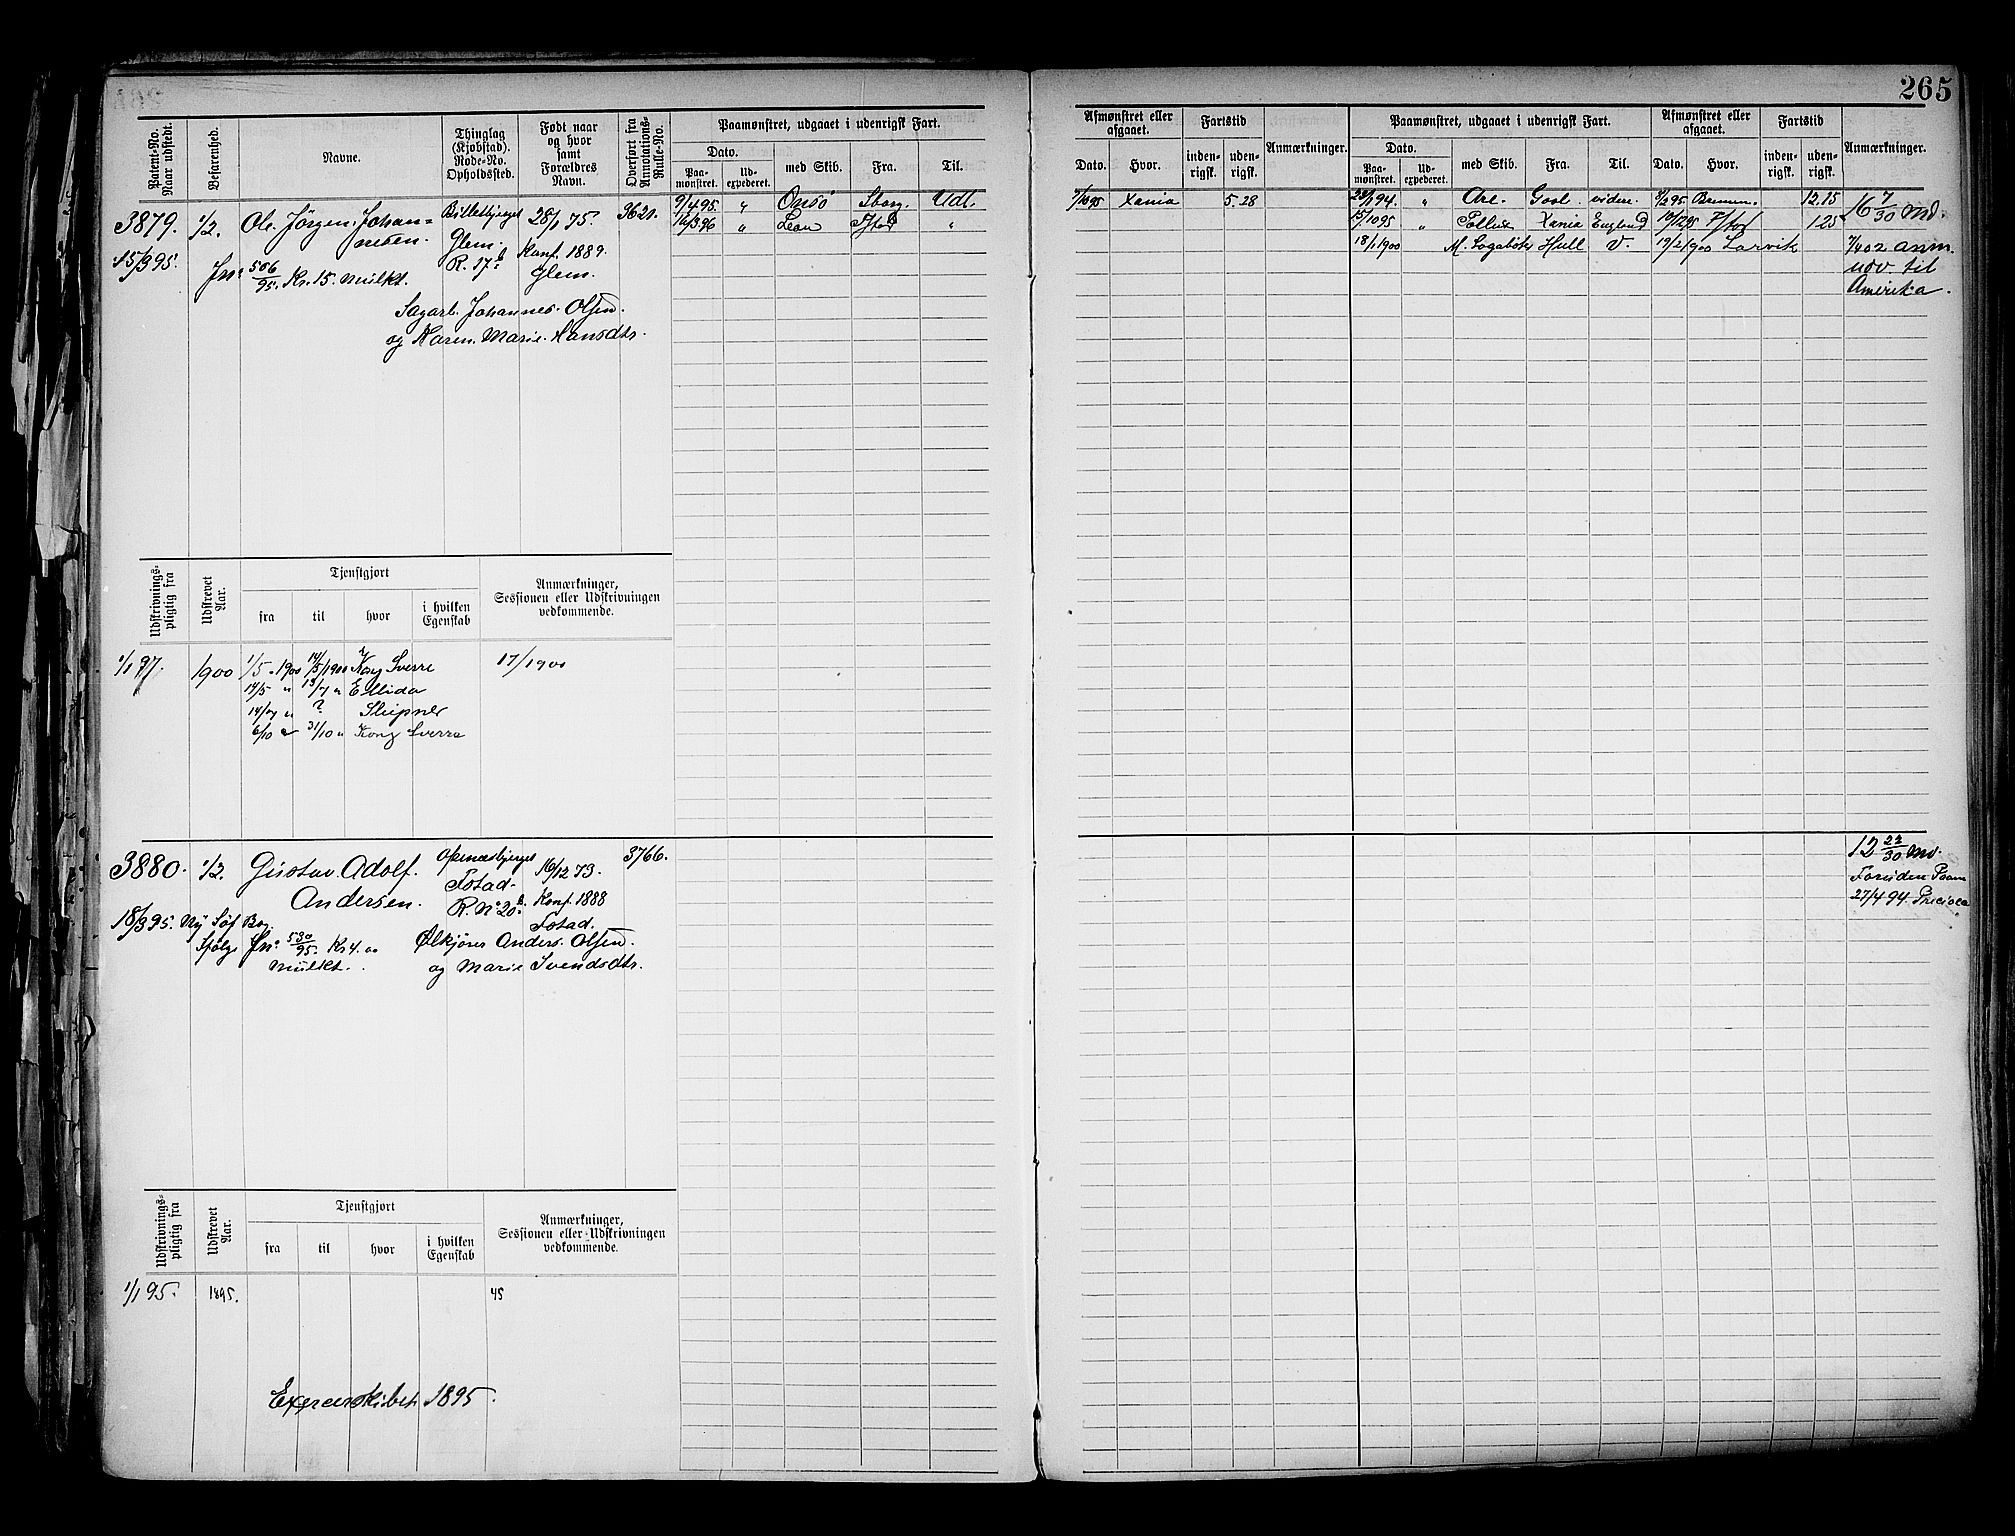 265
Patent-No. Naar udstedt.
Befarenhed.
Navne.
Thinglag (Kjøbstad). Rode-No. Opholdssted.
Født naar og hvor samt Forældres Navn.
Overført fra Annotations-Rulle-No.
Paamønstret, udgaaet i udenrigsk Fart.
Dato.
Paa-mønstret.
Ud-expederet.
med Skib.
Fra.
Til.
Afmønstret eller afgaaet.
Fartstid
Dato.
Hvor.
inden-rigsk.
uden-rigsk.
Anmærkninger.
Paamønstret, udgaaet i udenrigsk Fart.
Afmønstret eller afgaaet.
Fartstid
Dato.
Paa-mønstret.
Ud-expederet.
med Skib.
Fra.
Til.
Dato.
Hvor.
inden-rigsk.
uden-rigsk.
Anmærkninger.
3879. 1/2. Ole Jørgen Johan=
nesen.
15/3 95.
Jn: 506/95. Kr. 15. mulkt.
Glem.
R. 17
28/1 75.
Konf. 1889.
Glem.
3621.
Sagarb. Johannes Olsen.
og Karen Marie Hansdtr.
9/4 95. " Onsø Sborg. Udl.
16/3 96 " Leon Fstad "
7/10 95 Xania 5.28
94. " Are. 95 Bremen. 12.15
15/10 95 " Pollux Xania England 10/12 95 F/stad 1.25
18/1 1900 Hull V. 19/2 1900 Larvik
16 7/30 Md.
7/4 02 anm.
udv. til
Amerika.
Udskrivnings-pligtig fra
Udskrevet Aar.
Tjenstgjort
fra
til
hvor
i hvilken Egenskab
Anmærkninger,
Sessionen eller Udskrivningen
vedkommende.
1/1 97. 1900 1/5 1900 14/5 1900 Kong Sverre 17/1900
14/5 " 13/7 " Ellida
14/7 " ? Sleipner
6/10 " 31/10 " Kong Sverre
3880. 1/2. Gustav Adolf.
Andersen.
18/3 95. Ny Søf Bog
Ifølge Jn: 530/95. Kr 4.00
mulkt.
Fstad.
R. No 20
16/12 73.
Konf. 1888
Fstad.
3766.
Ølkjører Anders Olsen.
og Marie Svendsdtr.
12 22/30 Md.
Foruden Paam
27/4 94.
Udskrivnings-pligtig fra
Udskrevet Aar.
Tjenstgjort
fra
til
hvor
i hvilken Egenskab
Anmærkninger,
Sessionen eller Udskrivningen
vedkommende.
1/1 95. 1895. 45
Exercerskibet 1895.